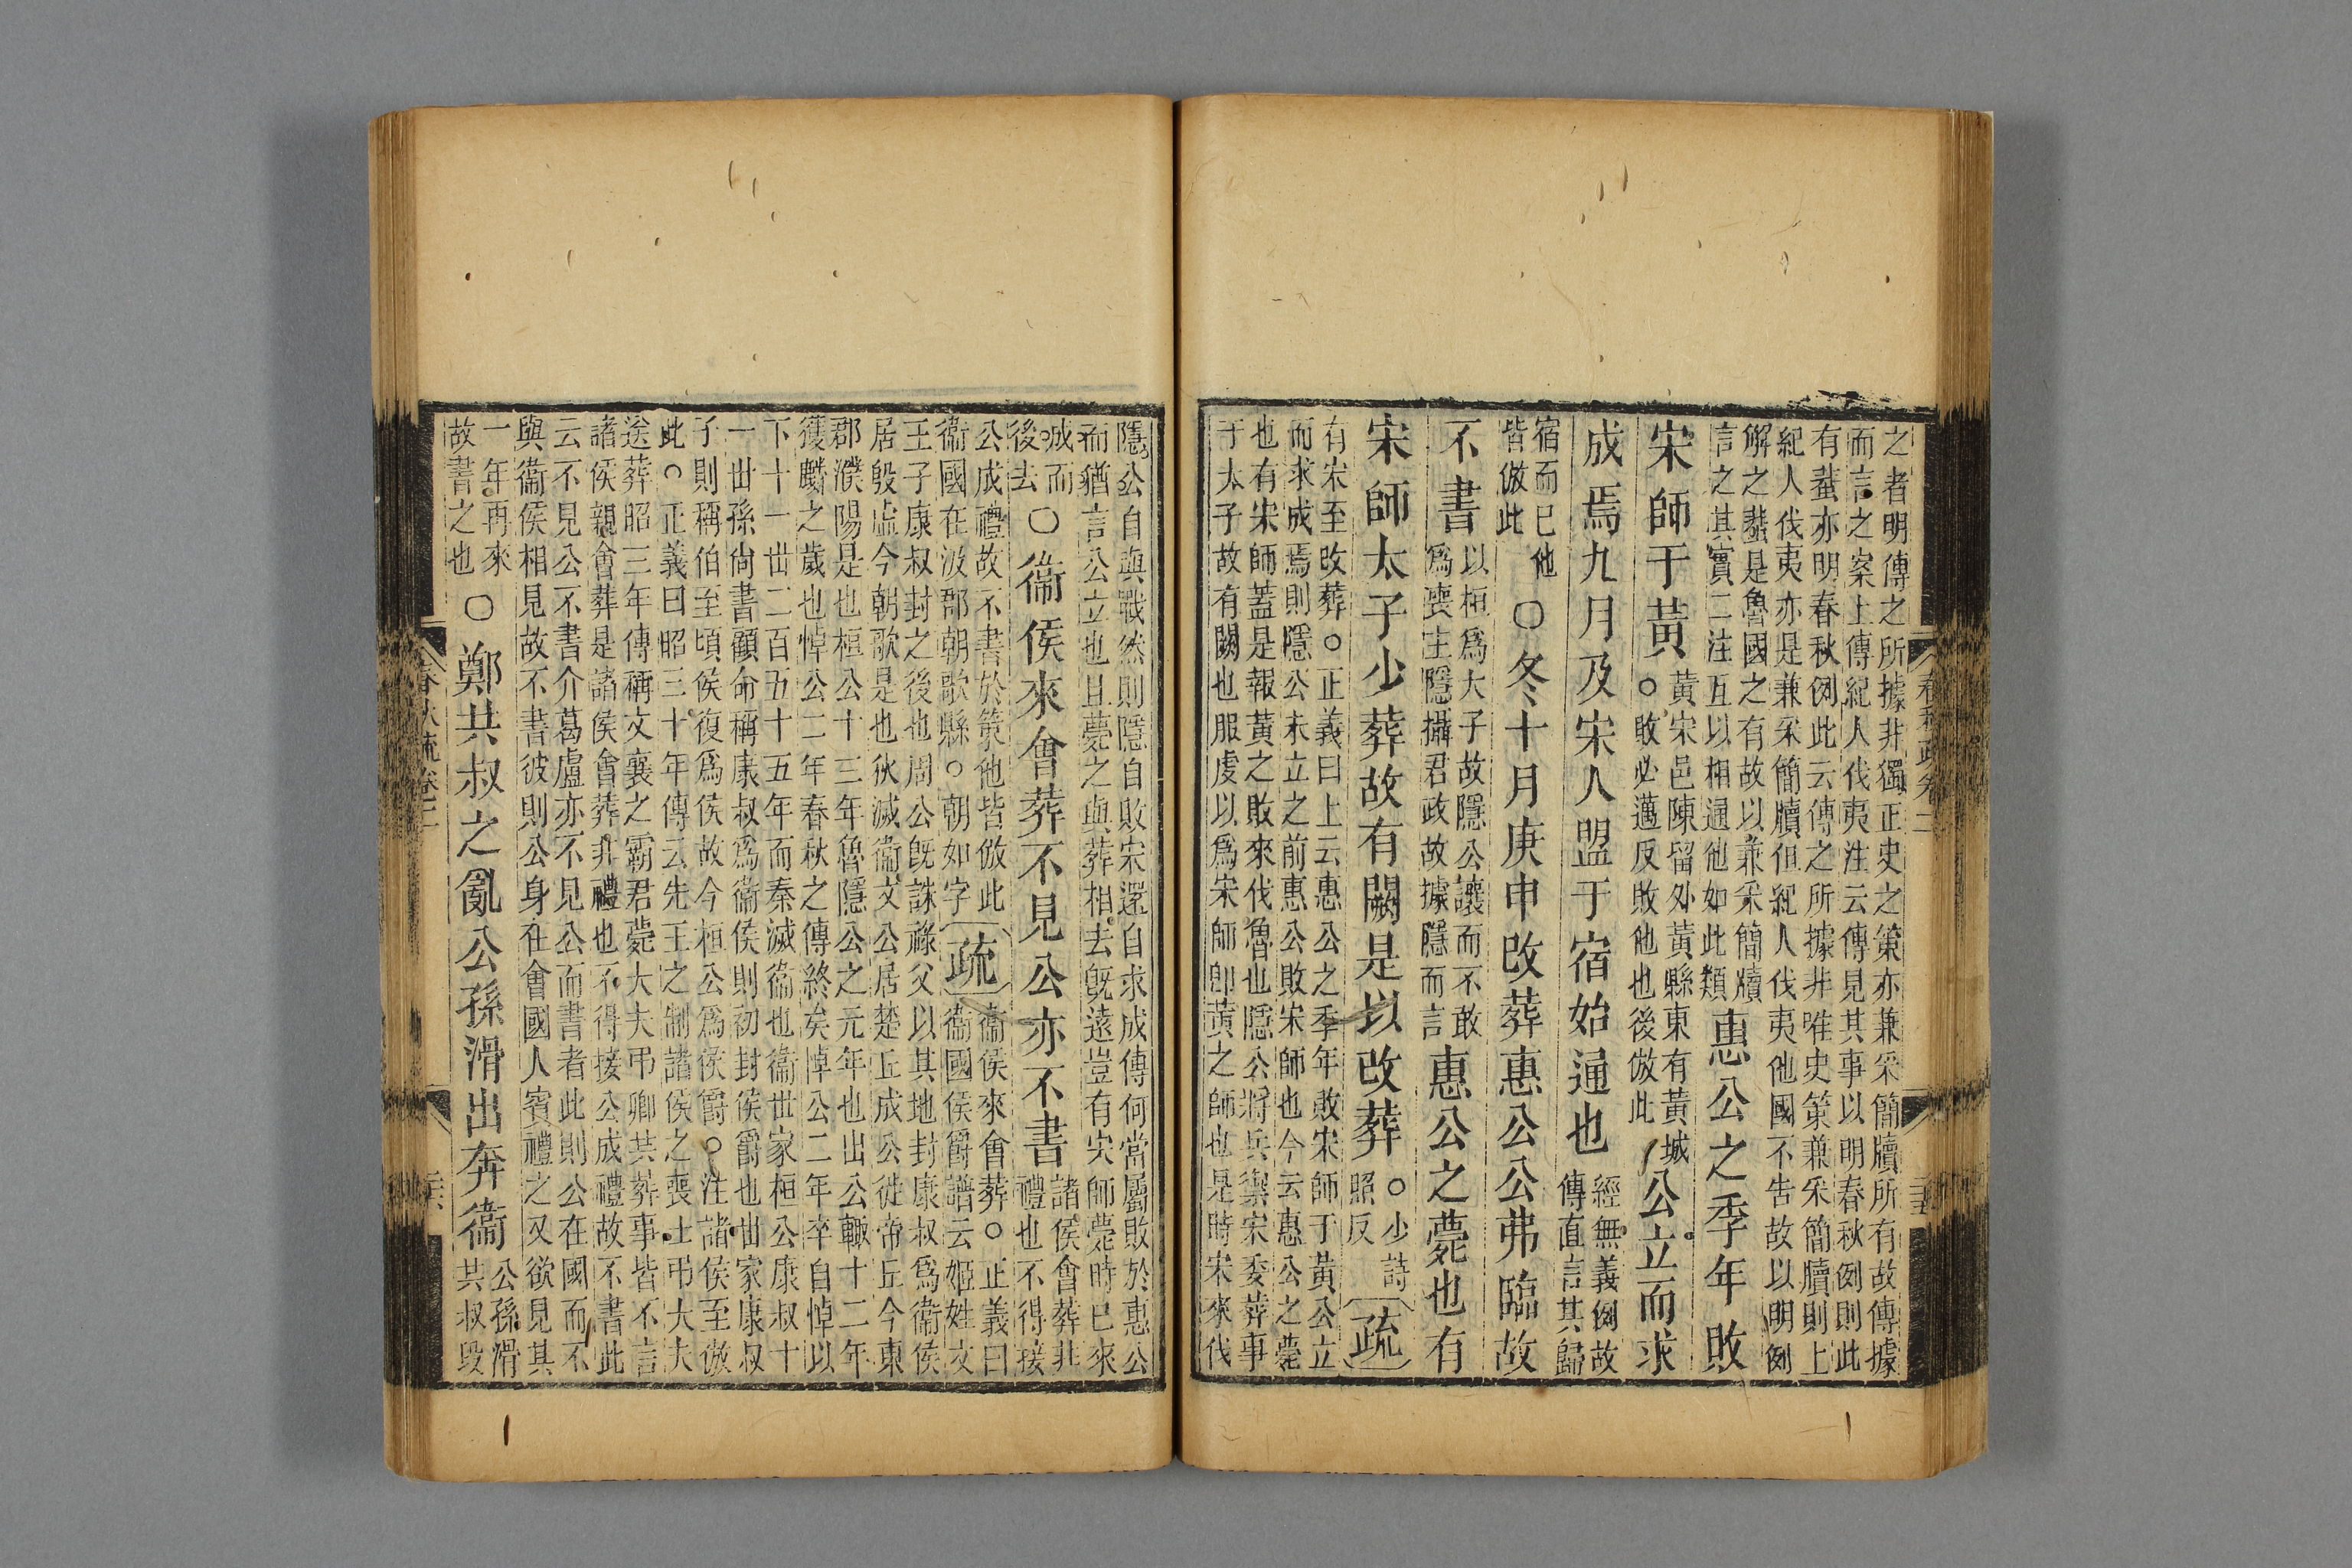 之者明傳之所據非獨正史之策亦兼采簡牘所有故傳據
而言之案上傳紀人伐夷注云傳見其事以明春秋例則此
有蜚亦明春秋例此云傳之所據非唯史策兼采簡牘則上
紀人伐夷亦是兼采簡牘但紀人伐夷他國不告故以明例
解之蜚是魯國之有故以兼采簡牘
言之其實二注互以相通他如此類
惠公之季年敗
宋師于黃
黃宋邑陳留外黃縣東有黃城
○敗必邁反敗他也後倣此
公立而求
成焉九月及宋人盟于宿始通也
經無義例故
傳直言其歸
宿而已他
皆倣此
○冬十月庚申改葬惠公公弗臨故
不書
以桓爲大子故隱公讓而不敢
爲喪主隱攝君政故據隱而言
惠公之薨也有
宋師太子少葬故有闕是以改葬
○少詩
照反
疏
有宋至改葬○正義曰上云惠公之季年敗宋師于黃公立
而求成焉則隱公未立之前惠公敗宋師也今云惠公之薨
也有宋師蓋是報黃之敗來伐魯也隱公將兵禦宋委葬事
于太子故有闕也服虔以爲宋師卽黃之師也是時宋來伐
春秋疏卷二
隱公自與戰然則隱自敗宋還自求成傳何當屬敗於惠公
而猶言公立也且薨之與葬相去旣遠豈有宋師薨時已來
成而
後去
○衞侯來會葬不見公亦不書
諸侯會葬非
禮也不得接
公成禮故不書於策他皆倣此
衞國在汲郡朝歌縣○朝如字
疏
衞侯來會葬○正義曰
衞國侯爵譜云姬姓文
王子康叔封之後也周公旣誅祿父以其地封康叔爲衞侯
居殷虛今朝歌是也狄滅衞文公居楚丘成公徙帝丘今東
郡濮陽是也桓公十三年魯隱公之元年也出公輒十二年
獲麟之歲也悼公二年春秋之傳終矣悼公二年卒自悼以
下十一世二百五十五年而秦滅衞也衞世家桓公康叔十
一世孫尙書顧命稱康叔爲衞侯則初封侯爵也世家康叔
子則稱伯至頃侯復爲侯故今桓公爲侯爵○注諸侯至倣
此○正義曰昭三十年傳云先王之制諸侯之喪士弔大夫
送葬昭三年傳稱文襄之霸君薨大夫弔卿共葬事皆不言
諸侯親會葬是諸侯會葬非禮也不得接公成禮故不書此
云不見公不書介葛盧亦不見公而書者此則公在國而不
與衞侯相見故不書彼則公身在會國人賓禮之又欲見其
一年再來
故書之也
○鄭共叔之亂公孫滑出奔衞
公孫滑
共叔段
春秋疏卷二